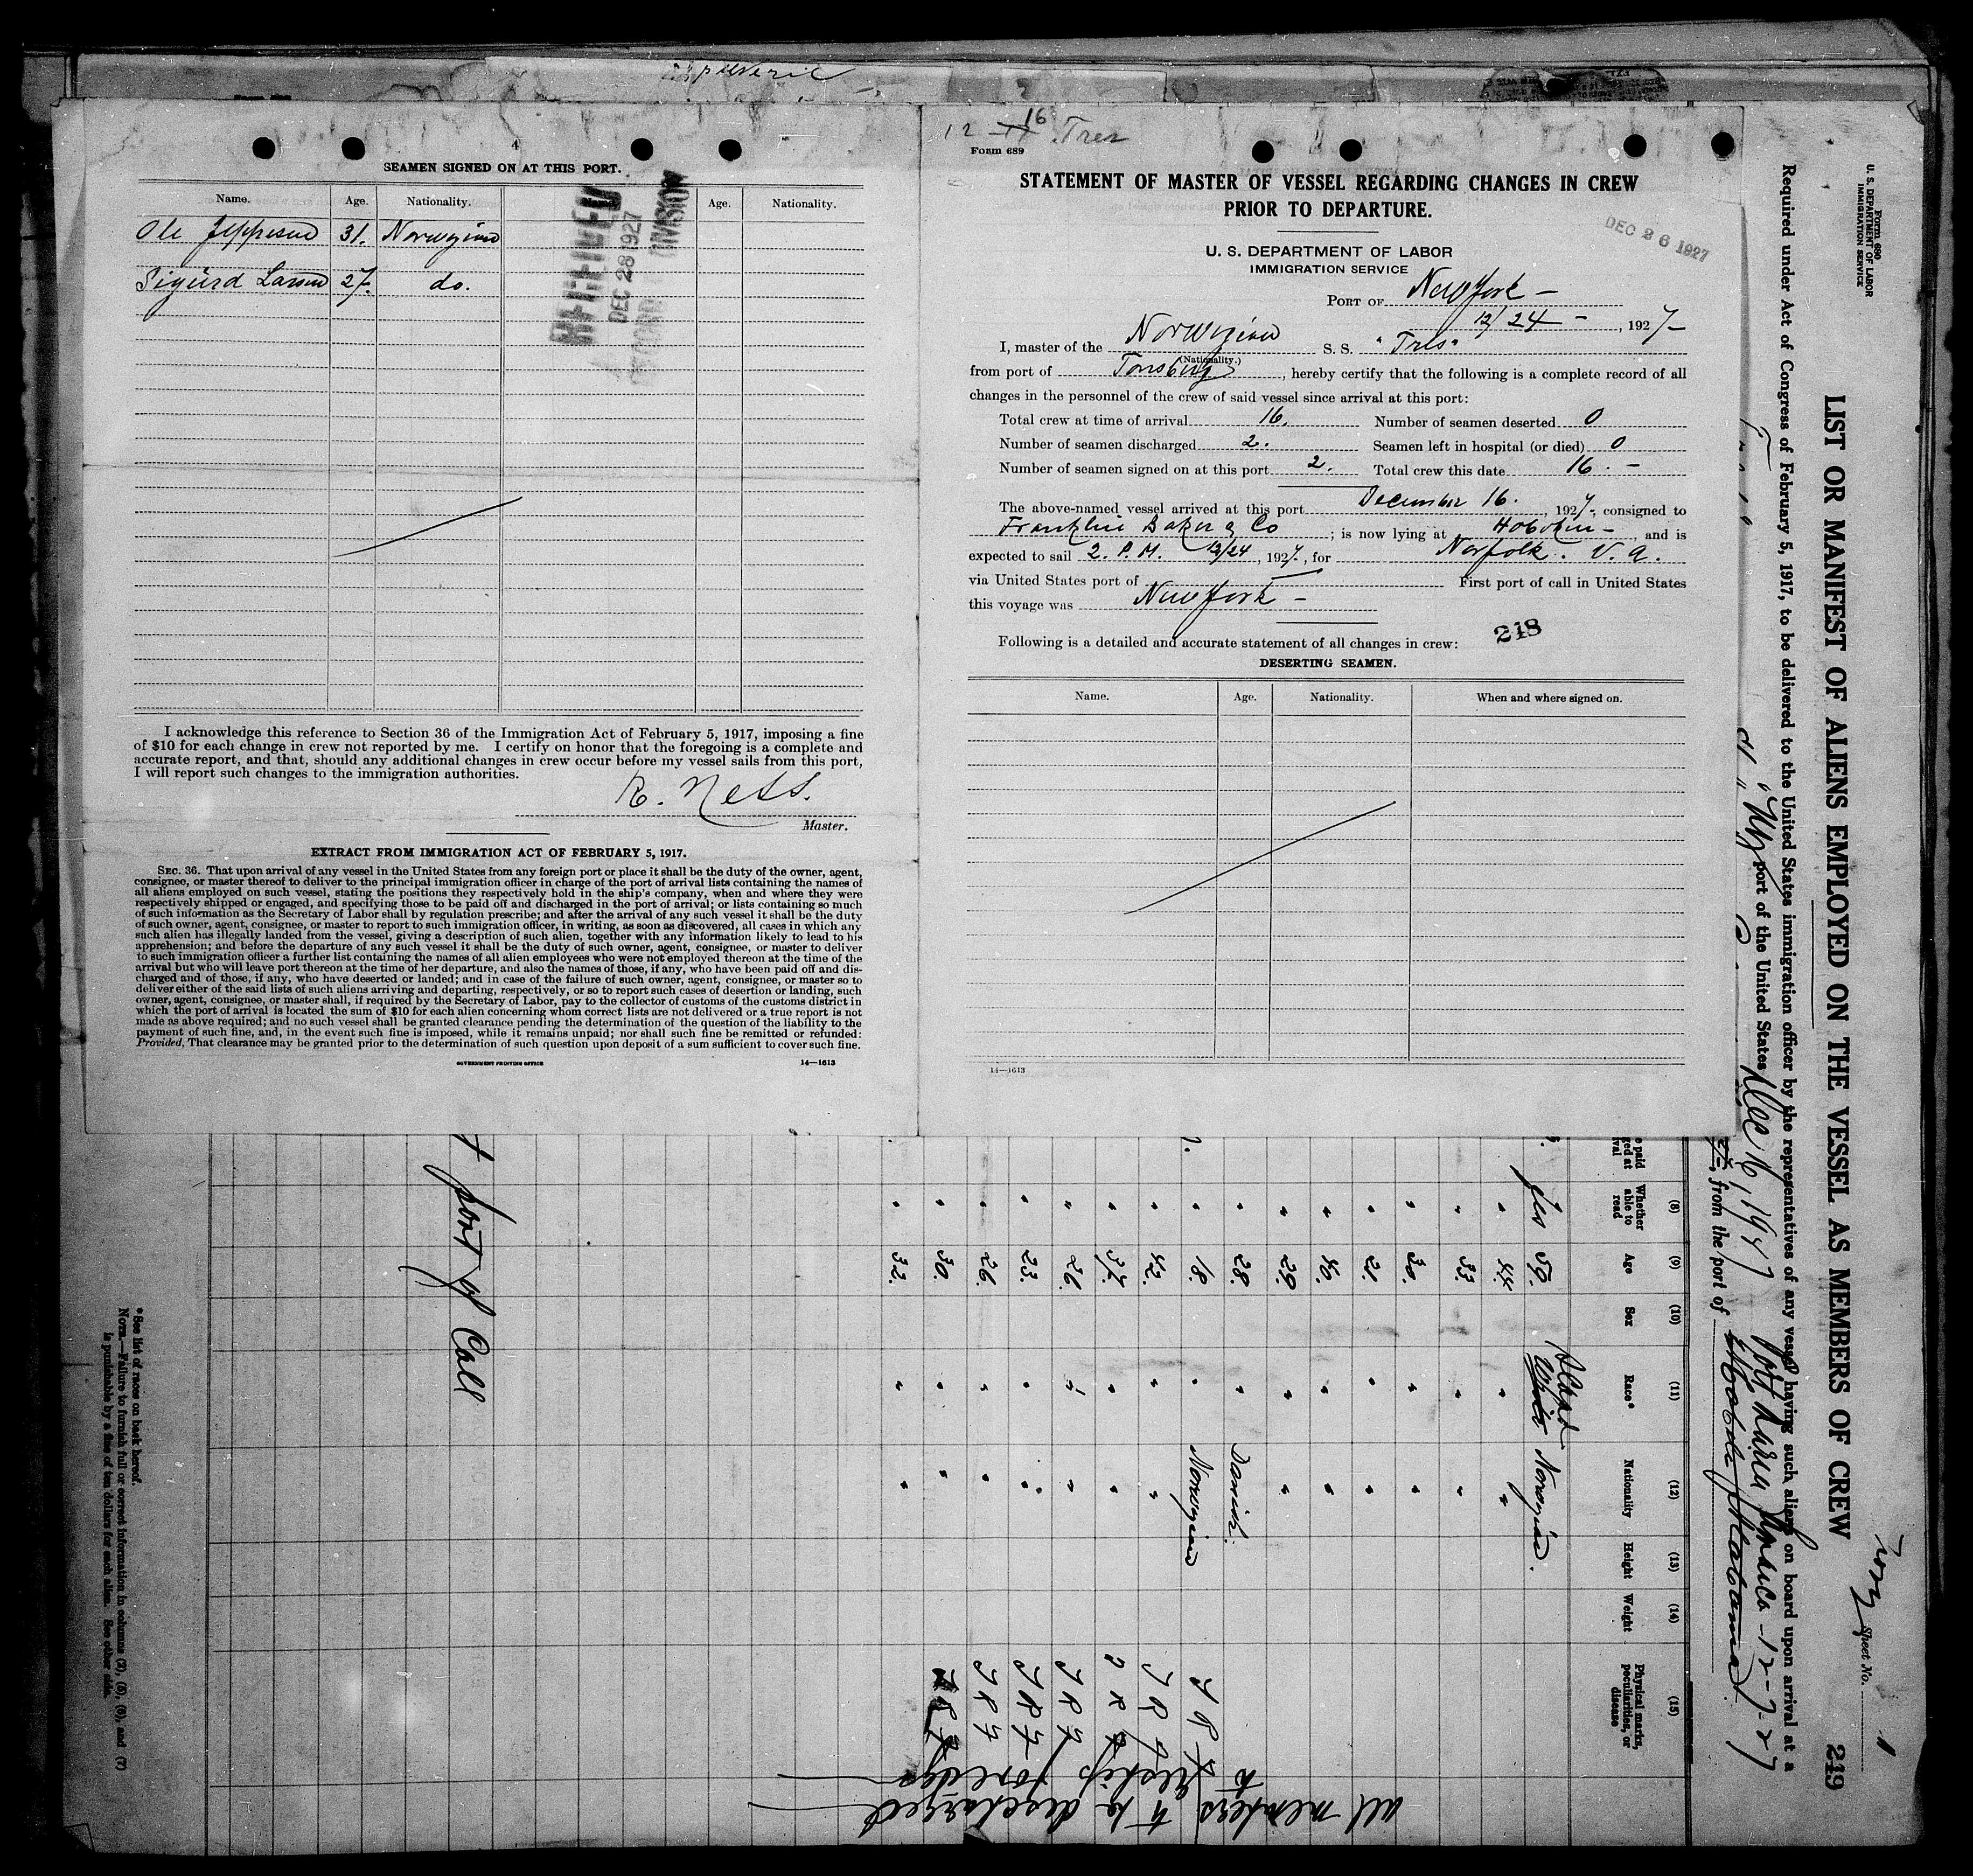 4
SEAMEN SIGNED ON AT THIS PORT.
Name. Age. Nationality. Age. Nationality.
Ole Jeppesen 31. Norwegian
Sigurd Larsen 27. do.
RECEIVED
DEC 28 1927
RECORD DIVISION
I acknowledge this reference to Section 36 of the Immigration Act of February 5, 1917, imposing a fine
of $10 for each change in crew not reported by me. I certify on honor that the foregoing is a complete and
accurate report, and that, should any additional changes in crew occur before my vessel sails from this port,
I will report such changes to the immigration authorities.
R. Ness.
Master.
EXTRACT FROM IMMIGRATION ACT OF FEBRUARY 5, 1917.
SEC. 36. That upon arrival of any vessel in the United States from any foreign port or place it shall be the duty of the owner, agent,
consignee, or master thereof to deliver to the principal immigration officer in charge of the port of arrival lists containing the names of
all aliens employed on such vessel, stating the positions they respectively hold in the ship's company, when and where they were
respectively shipped or engaged, and specifying those to be paid off and discharged in the port of arrival; or lists containing so much
of such information as the Secretary of Labor shall by regulation prescribe; and after the arrival of any such vessel it shall be the duty
of such owner, agent, consignee, or master to report to such immigration officer, in writing, as soon as discovered, all cases in which any
such alien has illegally landed from the vessel, giving a description of such alien, together with any information likely to lead to his
apprehension; and before the departure of any such vessel it shall be the duty of such owner, agent, consignee, or master to deliver
to such immigration officer a further list containing the names of all alien employees who were not employed thereon at the time of the
arrival but who will leave port thereon at the time of her departure, and also the names of those, if any, who have been paid off and dis-
charged and of those, if any, who have deserted or landed; and in case of the failure of such owner, agent, consignee, or master so to
deliver either of the said lists of such aliens arriving and departing, respectively, or so to report such cases of desertion or landing, such
owner, agent, consignee, or master shall, if required by the Secretary of Labor, pay to the collector of customs of the customs district in
which the port of arrival is located the sum of $10 for each alien concerning whom correct lists are not delivered or a true report is not
made as above required; and no such vessel shall be granted clearance pending the determination of the question of the liability to the
payment of such fine, and, in the event such fine is imposed, while it remains unpaid; nor shall such fine be remitted or refunded:
Provided, That clearance may be granted prior to the determination of such question upon deposit of a sum sufficient to cover such fine.
GOVERNMENT PRINTING OFFICE 14—1613
12 16 Tres
Form 689
STATEMENT OF MASTER OF VESSEL REGARDING CHANGES IN CREW
PRIOR TO DEPARTURE.
DEC 26 1927
U. S. DEPARTMENT OF LABOR
IMMIGRATION SERVICE
PORT OF New York –
12/24 – , 1927–
I, master of the Norwegian S. S. "Tres"
(Nationality.)
from port of Tonsberg, hereby certify that the following is a complete record of all
changes in the personnel of the crew of said vessel since arrival at this port:
Total crew at time of arrival 16. Number of seamen deserted 0
Number of seamen discharged 2. Seamen left in hospital (or died) 0
Number of seamen signed on at this port 2. Total crew this date 16. –
The above-named vessel arrived at this port December 16., 1927–, consigned to
Franklin Baker & Co; is now lying at Hoboken –, and is
expected to sail 2. P.M. 12/24, 1927., for Norfolk. V.A.
via United States port of — First port of call in United States
this voyage was New York –
Following is a detailed and accurate statement of all changes in crew: 248
DESERTING SEAMEN.
Name. Age. Nationality. When and where signed on.
14—1613
Form 680
U. S. DEPARTMENT OF LABOR
IMMIGRATION SERVICE
Sheet No. 1
249
LIST OR MANIFEST OF ALIENS EMPLOYED ON THE VESSEL AS MEMBERS OF CREW
Required under Act of Congress of February 5, 1917, to be delivered to the United States immigration officer by the representatives of any vessel having such aliens on board upon arrival at a
port of the United States Dec 16, 1927
, from the port of Mobile Alabama
12-7-27
(8) (9) (10) (11) (12) (13) (14) (15)
Whether able to read Age Sex Race* Nationality Height Weight Physical marks, peculiarities, or disease
yes 59. Scand White Norwegian.
" 44. " "
" 33. " "
" 30. " "
" 21. " "
" 40. " "
" 29. " "
" 28. " Danish.
" 18. " Norwegian
" 42. " "
" 37. " "
" 26. " "
" 23. " "
" 26. " "
" 30. " "
" 32. " "
all members to be discharged
port of Call
*See list of races on back hereof.
NOTE.—Failure to furnish full or correct information in columns (2), (5), (6), and (7)
is punishable by a fine of ten dollars for each alien. See other side.